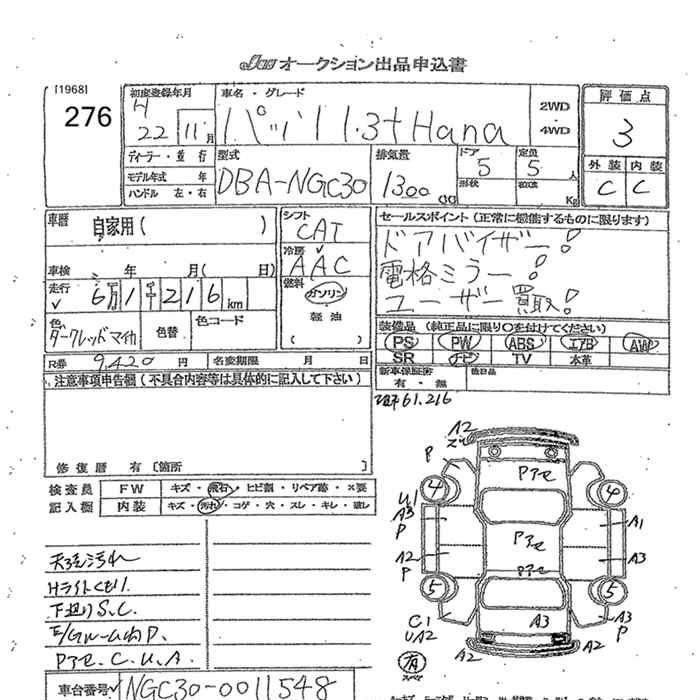 JAA オークション出品申込書
[1968]
276
初度登録年月
H
22 11月
車名・グレード
パッソ 1.3+Hana
2WD
・
4WD
評価点
3
外装 内装
C C
ディーラー・並行
モデル年式 年
ハンドル 左・右
型式
DBA-NGC30
排気量
1300 CC
ドア 5
形状
定員 5 人
積載 Kg
車歴 自家用( )
車検 年 月( 日)
走行 6万1千216km
シフト
CAT
冷房
AAC
燃料
ガソリン
軽油
( )
色
ダークレッドマイカ
色替
色コード
セールスポイント (正常に機能するものに限ります)
ドアバイザー!
電格ミラー!
ユーザー買取!
装備品 (純正品に限り○を付けてください)
PS PW ABS エアB AW
SR ナビ TV 本革
R券 9,420 円
名変期限 月 日
新車保証書
有・無
後日品
注意事項申告欄 (不具合内容等は具体的に記入して下さい)
修復歴 有 [箇所 ]
61.216
検査員
記入欄
FW キズ・飛石・ヒビ割・リペア跡・×要
内装 キズ・汚れ・コゲ・穴・スレ・キレ・破レ
天張汚れ
Hライトくもり
下廻りS.C.
E/Gルーム内P.
Pアセ.C.U.A.
車台番号 NGC30-0011548
A2
P
Pアセ
4 4
U1
A3
P
A1
Pアセ
A2
P
A3
Pアセ
5 5
C1
UA2
A3
A3
P
A2 A2
有
スペア